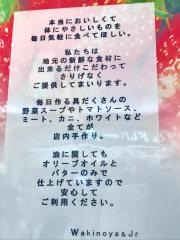 本当においしくて
体にやさしいものを
毎日気軽に食べてほしい。
私たちは
地元の新鮮な食材に
出来るだけこだわって
さりげなく
ご提供してまいります。
毎日作る具だくさんの
野菜スープやトマトソース、
ミート、カニ、ホワイトなど
全てが
店内手作り。
油に関しても
オリーブオイルと
バターのみで
仕上げていますので
安心して
ご利用ください。
Wakinoya&Jr